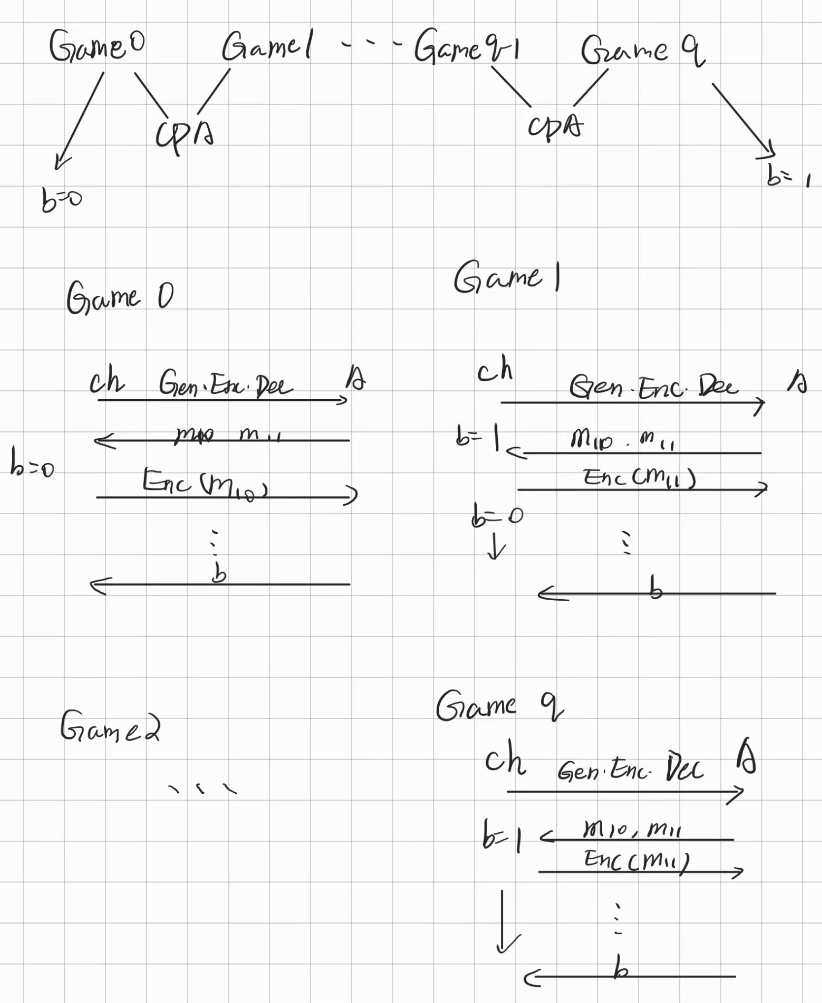 Game 0 Game 1 ... Game q-1 Game q
CPA CPA
b=0 b=1
Game 0
ch Gen.Enc.Dec A
m10 m11
b=0
Enc(m10)
⋮
b
Game 1
ch Gen.Enc.Dec A
b=1 m10.m11
Enc(m11)
b=0
⋮
b
Game 2
...
Game q
ch Gen.Enc.Dec A
b=1 m10,m11
Enc(m11)
⋮
b